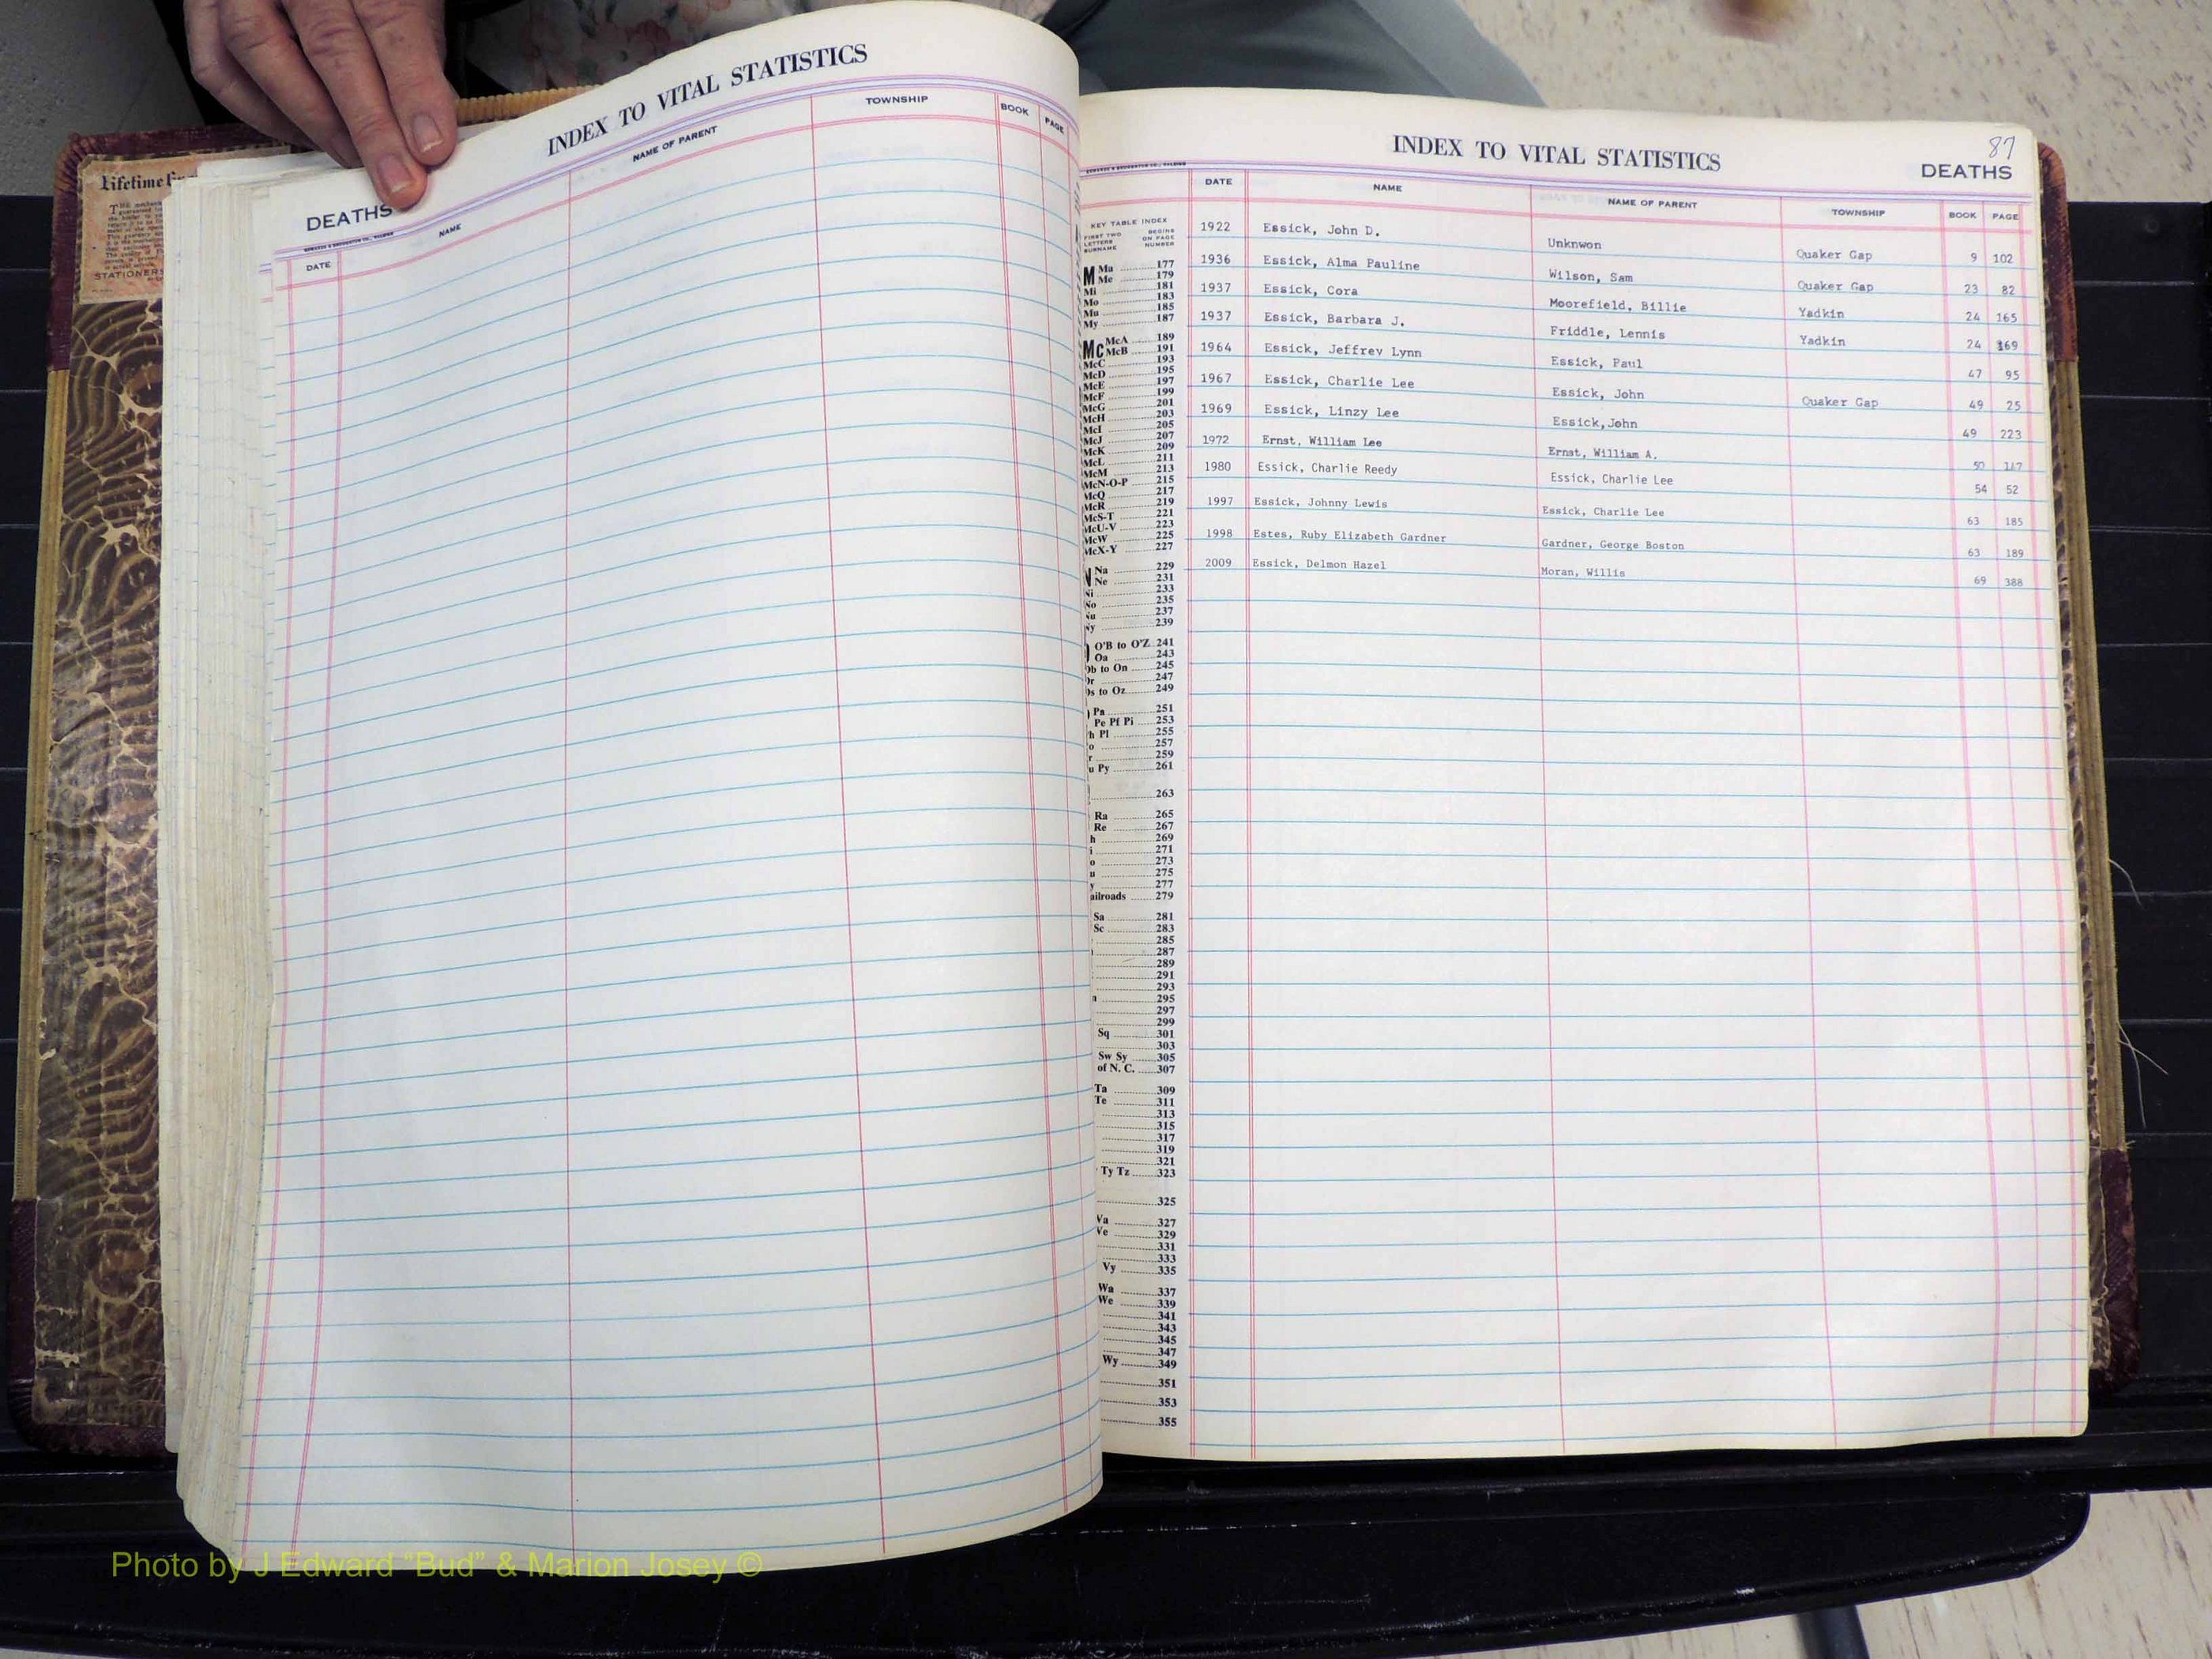 Lifetime
STATIONERS
INDEX TO VITAL STATISTICS
DEATHS
DATE NAME NAME OF PARENT TOWNSHIP BOOK PAGE
87
INDEX TO VITAL STATISTICS
DEATHS
DATE NAME NAME OF PARENT TOWNSHIP BOOK PAGE
1922 Essick, John D. Unknwon Quaker Gap 9 102
1936 Essick, Alma Pauline Wilson, Sam Quaker Gap 23 82
1937 Essick, Cora Moorefield, Billie Yadkin 24 165
1937 Essick, Barbara J. Friddle, Lennis Yadkin 24 169
1964 Essick, Jeffrey Lynn Essick, Paul 47 95
1967 Essick, Charlie Lee Essick, John Quaker Gap 49 25
1969 Essick, Linzy Lee Essick,John 49 223
1972 Ernst, William Lee Ernst, William A. 50
1980 Essick, Charlie Reedy Essick, Charlie Lee 54 52
1997 Essick, Johnny Lewis Essick, Charlie Lee 63 185
1998 Estes, Ruby Elizabeth Gardner Gardner, George Boston 63 189
2009 Essick, Delmon Hazel Moran, Willis 69 388
KEY TABLE INDEX
FIRST TWO LETTERS SURNAME BEGINS ON PAGE NUMBER
M Ma 177
Me 179
Mi 181
Mo 183
Mu 185
My 187
Mc McA 189
McB 191
McC 193
McD 195
McE 197
McF 199
McG 201
McH 203
McI 205
McJ 207
McK 209
McL 211
McM 213
McN-O-P 215
McQ 217
McR 219
McS-T 221
McU-V 223
McW 225
McX-Y 227
N Na 229
Ne 231
Ni 233
No 235
Nu 237
Ny 239
O'B to O'Z 241
Oa 243
Ob to On 245
Or 247
Os to Oz 249
Pa 251
Pe Pf Pi 253
h Pl 255
o 257
r 259
u Py 261
263
Ra 265
Re 267
h 269
i 271
o 273
u 275
y 277
ailroads 279
Sa 281
Sc 283
285
287
289
291
293
295
297
299
Sq 301
303
Sw Sy 305
of N. C. 307
Ta 309
Te 311
313
315
317
319
321
Ty Tz 323
325
Va 327
Ve 329
331
333
Vy 335
Wa 337
We 339
341
343
345
347
Wy 349
351
353
355
Photo by J Edward “Bud” & Marion Josey ©